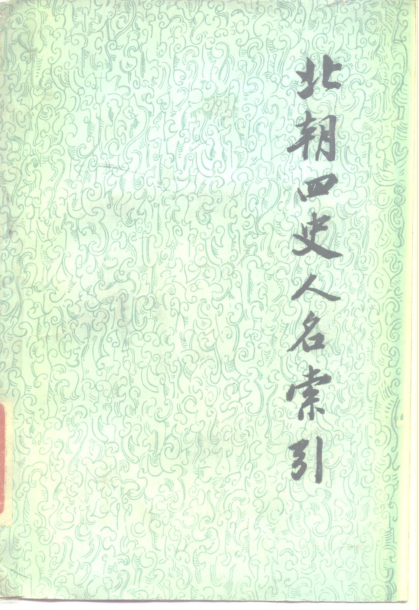 北朝四史人名索引